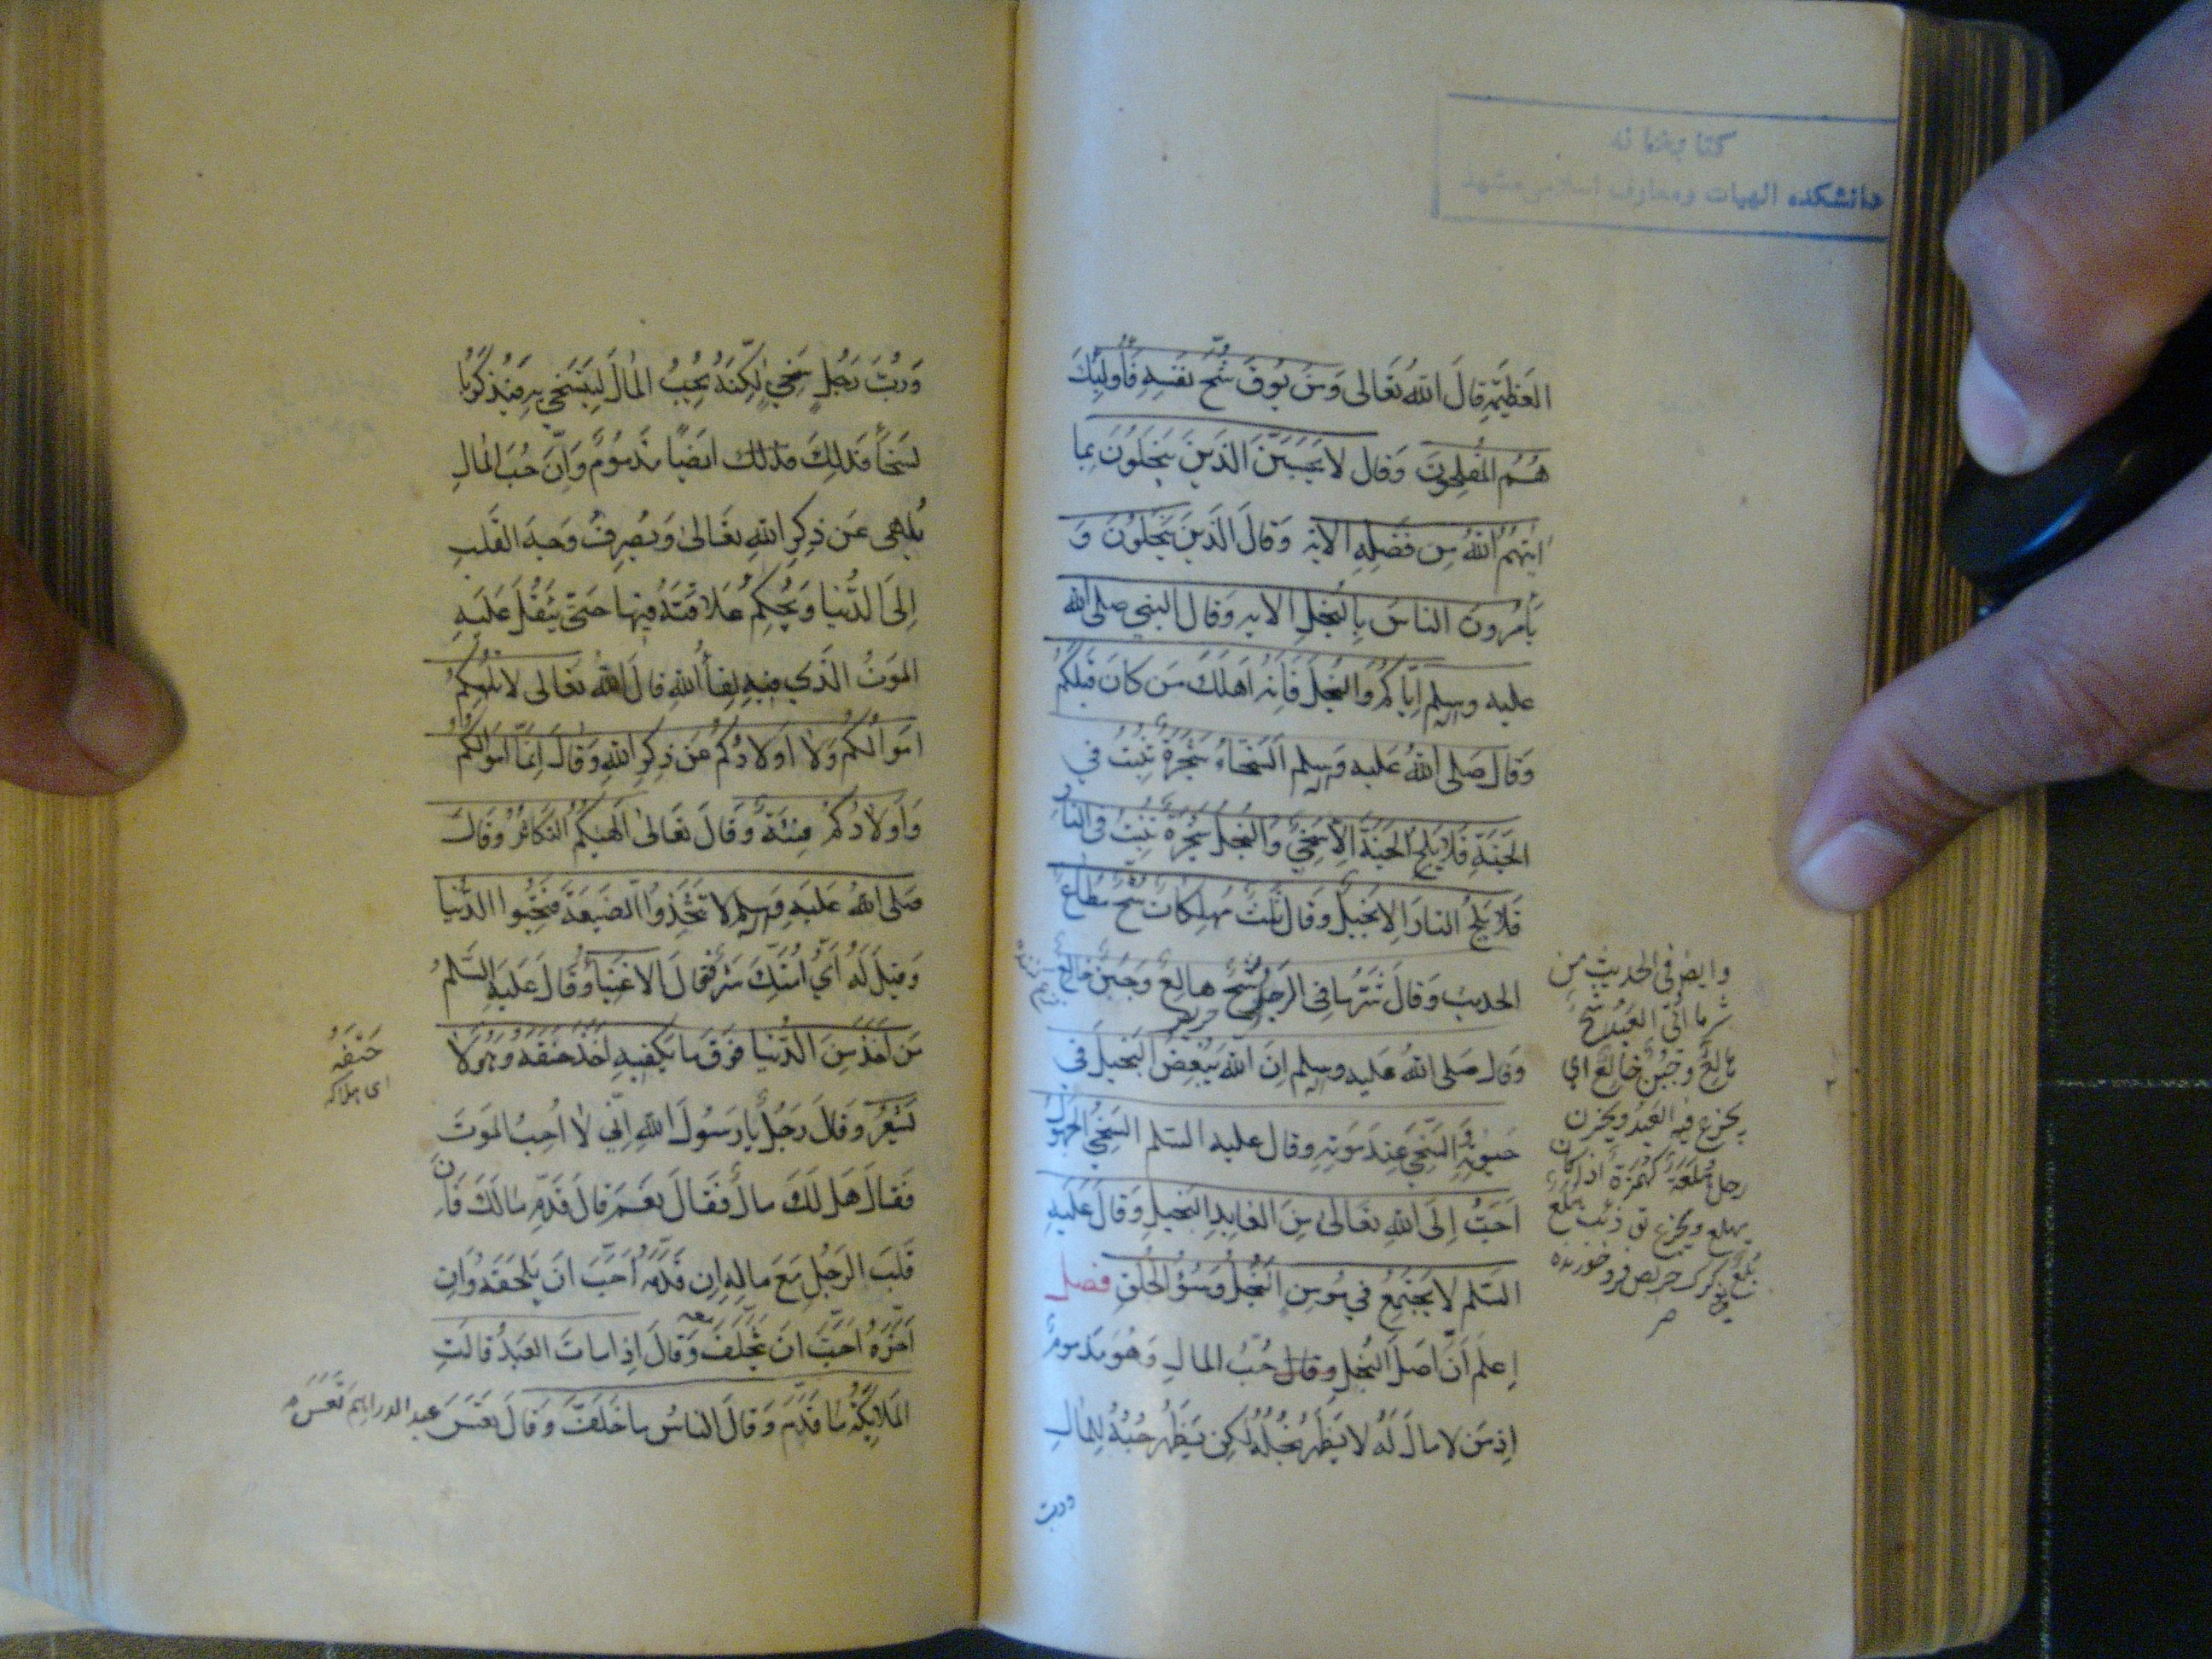 كتابخانه
دانشكده الهيات ومعارف اسلامى مشهد
العَظيمَةِ قالَ اللهُ تَعَالى وَمَنْ يُوقَ شُحَّ نفسِهِ فَأُولَئِكَ
هُمُ المُفلِحُونَ وَقال لا يَحسَبَنَّ الَّذينَ يَبخَلُونَ بِما
اتيهُمُ اللهُ مِن فَضلِهِ الاية وَقالَ الَّذينَ يَبخَلونَ وَ
يَأمُرونَ الناسَ بِالبُخلِ الاية وَقال النبي صلى الله
عليه وسلم اِيّاكُم وَالبُخلَ فَاِنّهُ اَهلَكَ مَن كانَ قَبلَكُم
وَقال صَلى اللهُ عَليه وَسلم السَّخَاءُ شَجَرَةٌ تَنبُتُ في
الجَنَّةِ فَلا يَلِجُ الجَنَّةَ اِلّا سَخِيٌّ وَالبُخلُ شَجَرَةٌ تَنبُتُ في النارِ
فَلا يَلِجُ النارَ اِلا بَخيلٌ وَقال ثَلثٌ مُهلِكاتٌ شُحٌّ مُطَاعٌ
الحديث وَقالَ شَرُّ ما في الرَجلِ شُحٌّ هالِعٌ وَجُبنٌ خالِعٌ
حريص
وَقال صَلى اللهُ عَليه وسلم اِنَّ اللهَ يُبغِضُ البَخيلَ في
حَيوتِهِ وَالسَّخِيَّ عِندَ مَوتِهِ وقال عليه السَّلم السَّخِيُّ الجَهولُ
اَحَبُّ اِلَى اللهِ تَعَالىٰ مِنَ العابِدِ البَخيلِ وَقالَ عَلَيهِ
السَّلم لا يَجتَمِعُ في مُومِن البُخلُ وَسُوءُ الخُلُقِ فصل
اِعلَم اَنَّ اَصلَ البُخلِ وقال حُبُّ المالِ وَهُوَ مَذمومٌ
اِذ مَن لا مالَ لَهُ لا يَظهَرُ بُخلُهُ لكِن يَظهَرُ حُبُّهُ لِلمالِ
وربّ
وايض في الحديث من
شر ما اُتي العَبدُ شُحٌّ
هالِعٌ وجُبنٌ خالِعٌ اي
يجزع فيه العَبدُ ويحزن
رجل هُلَعَة كهُمَزة اذا كان
يهلع ويجزع يق ذئب هُلَعٌ
بُلَعٌ گرگ حريص فرو خورنده
ص
وَرُبَّ رَجُلٍ سَخِيٍّ لكِنَّهُ يُحِبُّ المالَ لِيَتَسَخّي بِهِ فَيُذكَرَ بِا
لسَخاءِ فَذلِكَ فذلك ايضًا مَذمُومٌ وَاِنَّ حُبَّ المالِ
يُلهى عَن ذِكرِ اللهِ تعَالىٰ وَيَصرِفُ وَجهَ القَلبِ
اِلىَ الدُّنيا وَيُحكِمُ عَلاقَتَهُ فيها حَتىّ يَثقُلَ عَلَيهِ
المَوتُ الَّذي فيهِ لِقاءُ اللهِ قالَ اللهُ تعَالى لا تُلهِكُم
اَموالُكُم وَلا اَولادُكُم عَن ذِكرِ اللهِ وَقالَ اِنَّما اَموَالُكُم
وَاَولادُكُم فِتنَةٌ وَقالَ تعَالىٰ اَلهٰيكُمُ التَكاثُرُ وَقالَ
صَلى اللهُ عَلَيهِ وَسلم لا تتَّخِذوا الضَّيعَةَ فتُحِبُّوا الدُنيا
وَقيلَ لَهُ اَيُّ اُمَّتِكَ شَرٌّ فقالَ الاَغنِيَاءُ وَقالَ عَلَيهِ السَّلمُ
مَن اَخَذَ مِنَ الدُّنيا فَوقَ ما يَكفيهِ اَخَذَ حَتفَهُ وَهُوَ لا
حَتفَهُ
اى هلاكه
يَشعُرُ وَقالَ رَجُلٌ يا رَسُولَ اللهِ اِنّي لا اُحِبُّ المَوتَ
فَقالَ هَل لَكَ مالٌ فَقالَ نعَم قالَ قَدِّم مالَكَ فَاِنَّ
قَلبَ الرَجُلِ مَعَ مالِهِ اِن قَدَّمَهُ اَحَبَّ اَن يَلحَقَهُ وَاِن
اَخَّرَهُ اَحَبَّ اَن يتَخَلَّفَ معه وَقالَ اِذا ماتَ العَبدُ قالَتِ
المَلائِكَةُ ما قَدَّمَ وَقالَ الناسُ ما خَلَّفَ وَقالَ تعَسَ عبد الدراهم تَعَسَ